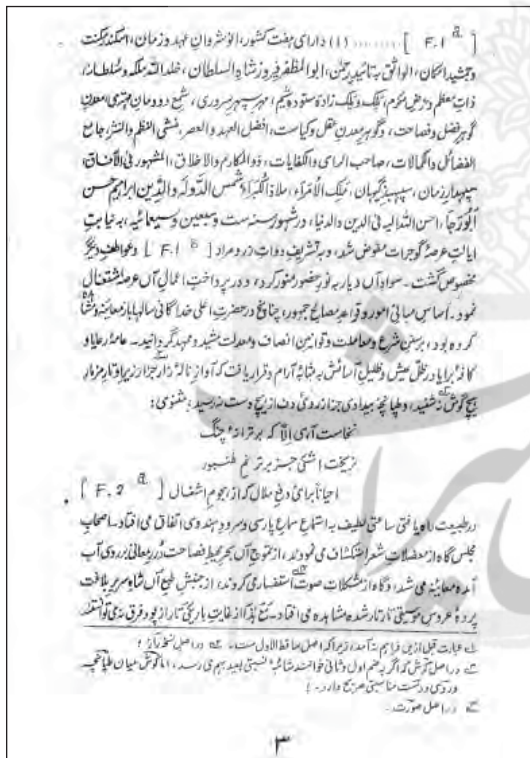 [ F. 1 a ] ........ (۱) دارای هفت کشور، انوشروانِ عهد و زمان، اسکندر مکنت
و جمشید امکان، الواثق بتائید الرحمٰن، ابوالمظفر فیروز شاہ السلطان، خلد اللہ ملکه و سلطانه،
ذات معظم و عرض مکرم، ملک ملک زادۂ ستوده شیم، مهر سپهر سروری، شمع دودمان مهتری، معدن
گوهر فضل و فصاحت، و گوهر معدن عقل و کیاست، افضل العهد و العصر، منشی النظم و النثر، جامع
الفضائل و الکمالات، صاحب الرای و الکفایات، ذو المکارم و الاخلاق، المشهور فی الآفاق،
سپهدار زمان، سپهبد گیهان، ملک الامراء، ملاذ الکبراء، شمس الدوله و الدین ابراهیم حسن
ابورجا، احسن اللہ الیه فی الدین و الدنیا، در شهور سنه ست و سبعین و سبعمائیة، به نیابتِ
ایالتِ عرصۂ گوجرات مفوض شد، و به تشریف دوات زر و مراد [ F. 1 b ] و عواطف دیگر
مخصوص گشت۔ سواد آن دیار به نور حضور منور کرد، و در پرداختِ اعمال آن عرصه اشتغال
نمود۔ اساس مبانی امور و قواعد مصالح جمهور، چنانچ در حضرتِ اعلی خدایگانی سالها باز معاینه و مشاهده
کرده بود، بر سنن شرع و معاملت و قوانین انصاف و معدلت مشید و ممهد گردانید۔ عامۂ رعایا و
کافۂ برایا در ظل عیش و ظلیل آسائش به مثابۂ آرام و قرار یافت که آواز نالۂ زار جز از زیر و تار مزمار
هیچ گوش نشنید، و طپانچۀ بیدادی جز از روی دف از هیچ دست نه رسید، مثنوی:
نخاست آری الّا که بر ترانۂ چنگ
نریخت اشکی جز بر ترنم طنبور
احیاناً برای دفع ملال که از هجوم اشغال [ F. 2 a ]
در طبیعت راه یافتی ساعتی لطیف به استماع سماع پارسی و سرود هندوی اتفاق می افتاد۔ اصحاب
مجلس گاه از معضلات شعر استکشاف می نمودند، از تموج آن بحر محیط فصاحت دُررِ معانی بر روی آب
آمده معاینه می شد، و گاه از مشکلات صوت استفساری کردند، از جنبش طبع آن شاه سریر بلاغت
پردۂ عروس موسیقی تار تار شده مشاهده می افتاد۔ مع هذا از غایت باریکی تار از پود فرق نه می توانستند
۱ـ عبارت قبل ازین فراهم نه آمد، زیرا که اصل ساقط الاول است۔ ۲ـ در اصل
۳ـ در اصل گوش که اگر به ضم اول و ثانی خوانند شائبۂ نسبتی بعید بهم می رسد، اما گوش میان طپانچه
و روی و دست مناسبتی صریح دارد۔
۴ـ در اصل صورت۔
۳